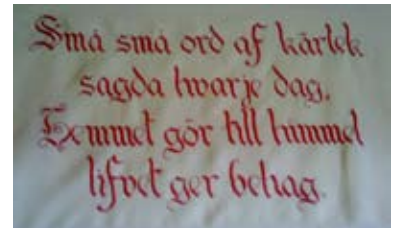 Små små ord af kärlek
sagda hvarje dag,
Hemmet gör till himmel
lifvet ger behag.